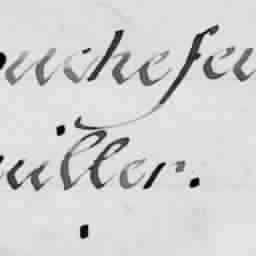 ouchefeu
uiller.